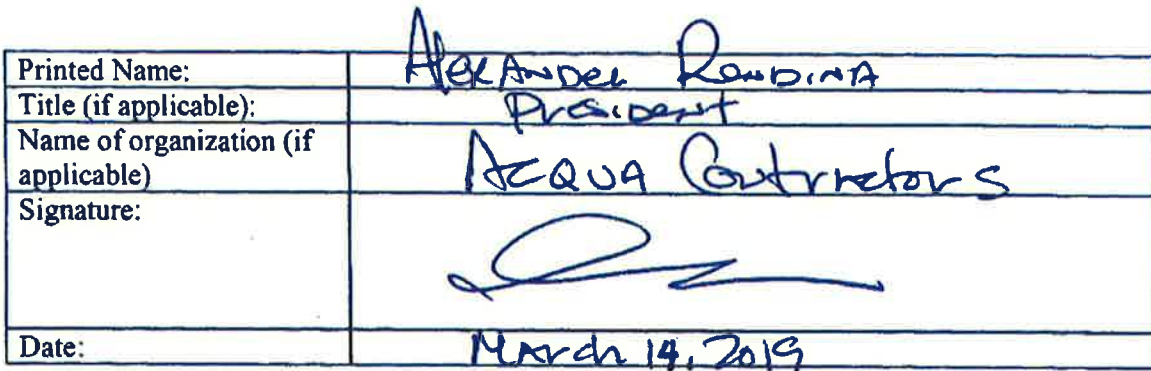 Printed Name: Alexander Rondina
Title (if applicable): President
Name of organization (if
applicable) Acqua Contractors
Signature:
Date: March 14, 2019